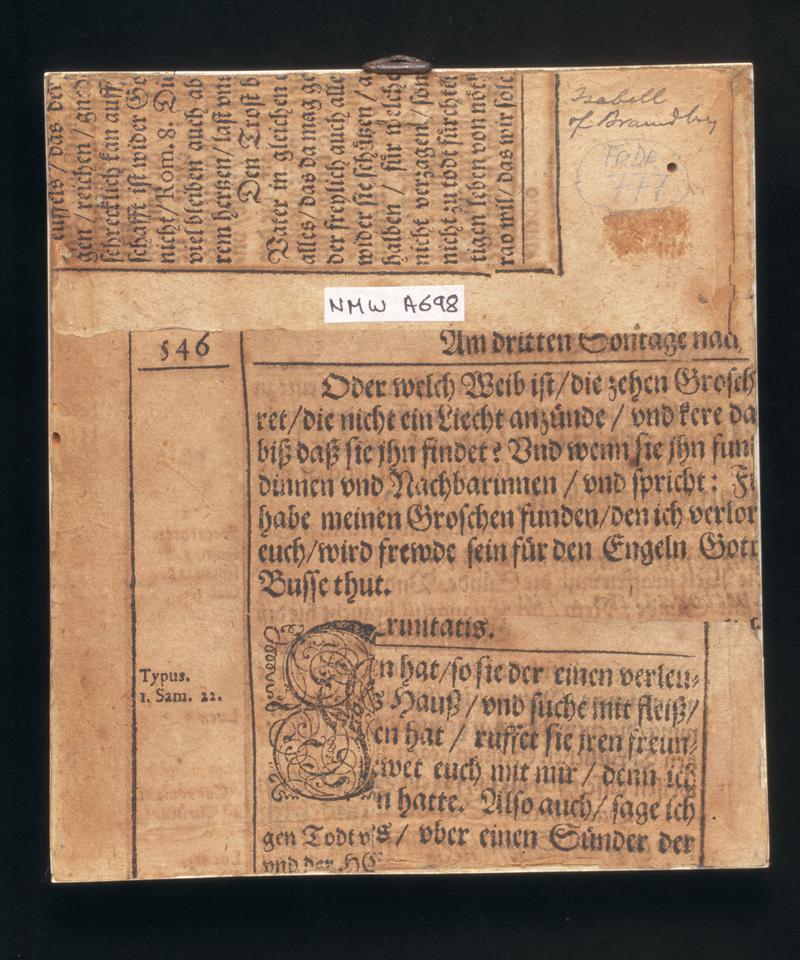 eussels / das der
gen / reichen / gne
schrecklich kan auff
schafft ist wider Ge
nicht / Rom. 8. Die
viel bleiben auch ab
rem hertzen / last vns
Den Trost h
Vater in gleichen
alles / das da mag ge
der freylich auch alle
wider sie schützen / a
halben / für welche
nicht verzagen / son
nicht zu todt fürchte
tigen leben von nöt
rao wil / das wir solc
Isabell
of Brandby
777
NMW A698
546
Am dritten Sontage nach
Oder welch Weib ist / die zehen Grosch
ret / die nicht ein Liecht anzünde / vnd kere da
biß daß sie jhn findet? Vnd wenn sie jhn fun
dinnen vnd Nachbarinnen / vnd spricht: F
habe meinen Groschen funden / den ich verlor
euch / wird frewde sein für den Engeln Gott
Busse thut.
runtatis.
n hat / so sie der einen verleu-
s Hauß / vnd suche mit fleiß /
Typus.
1. Sam. 22.
en hat / ruffet sie jren freun-
ewet euch mit mir / denn ich
n hatte. Also auch / sage ich
gen Todt v s / vber einen Sünder der
vnd der HE